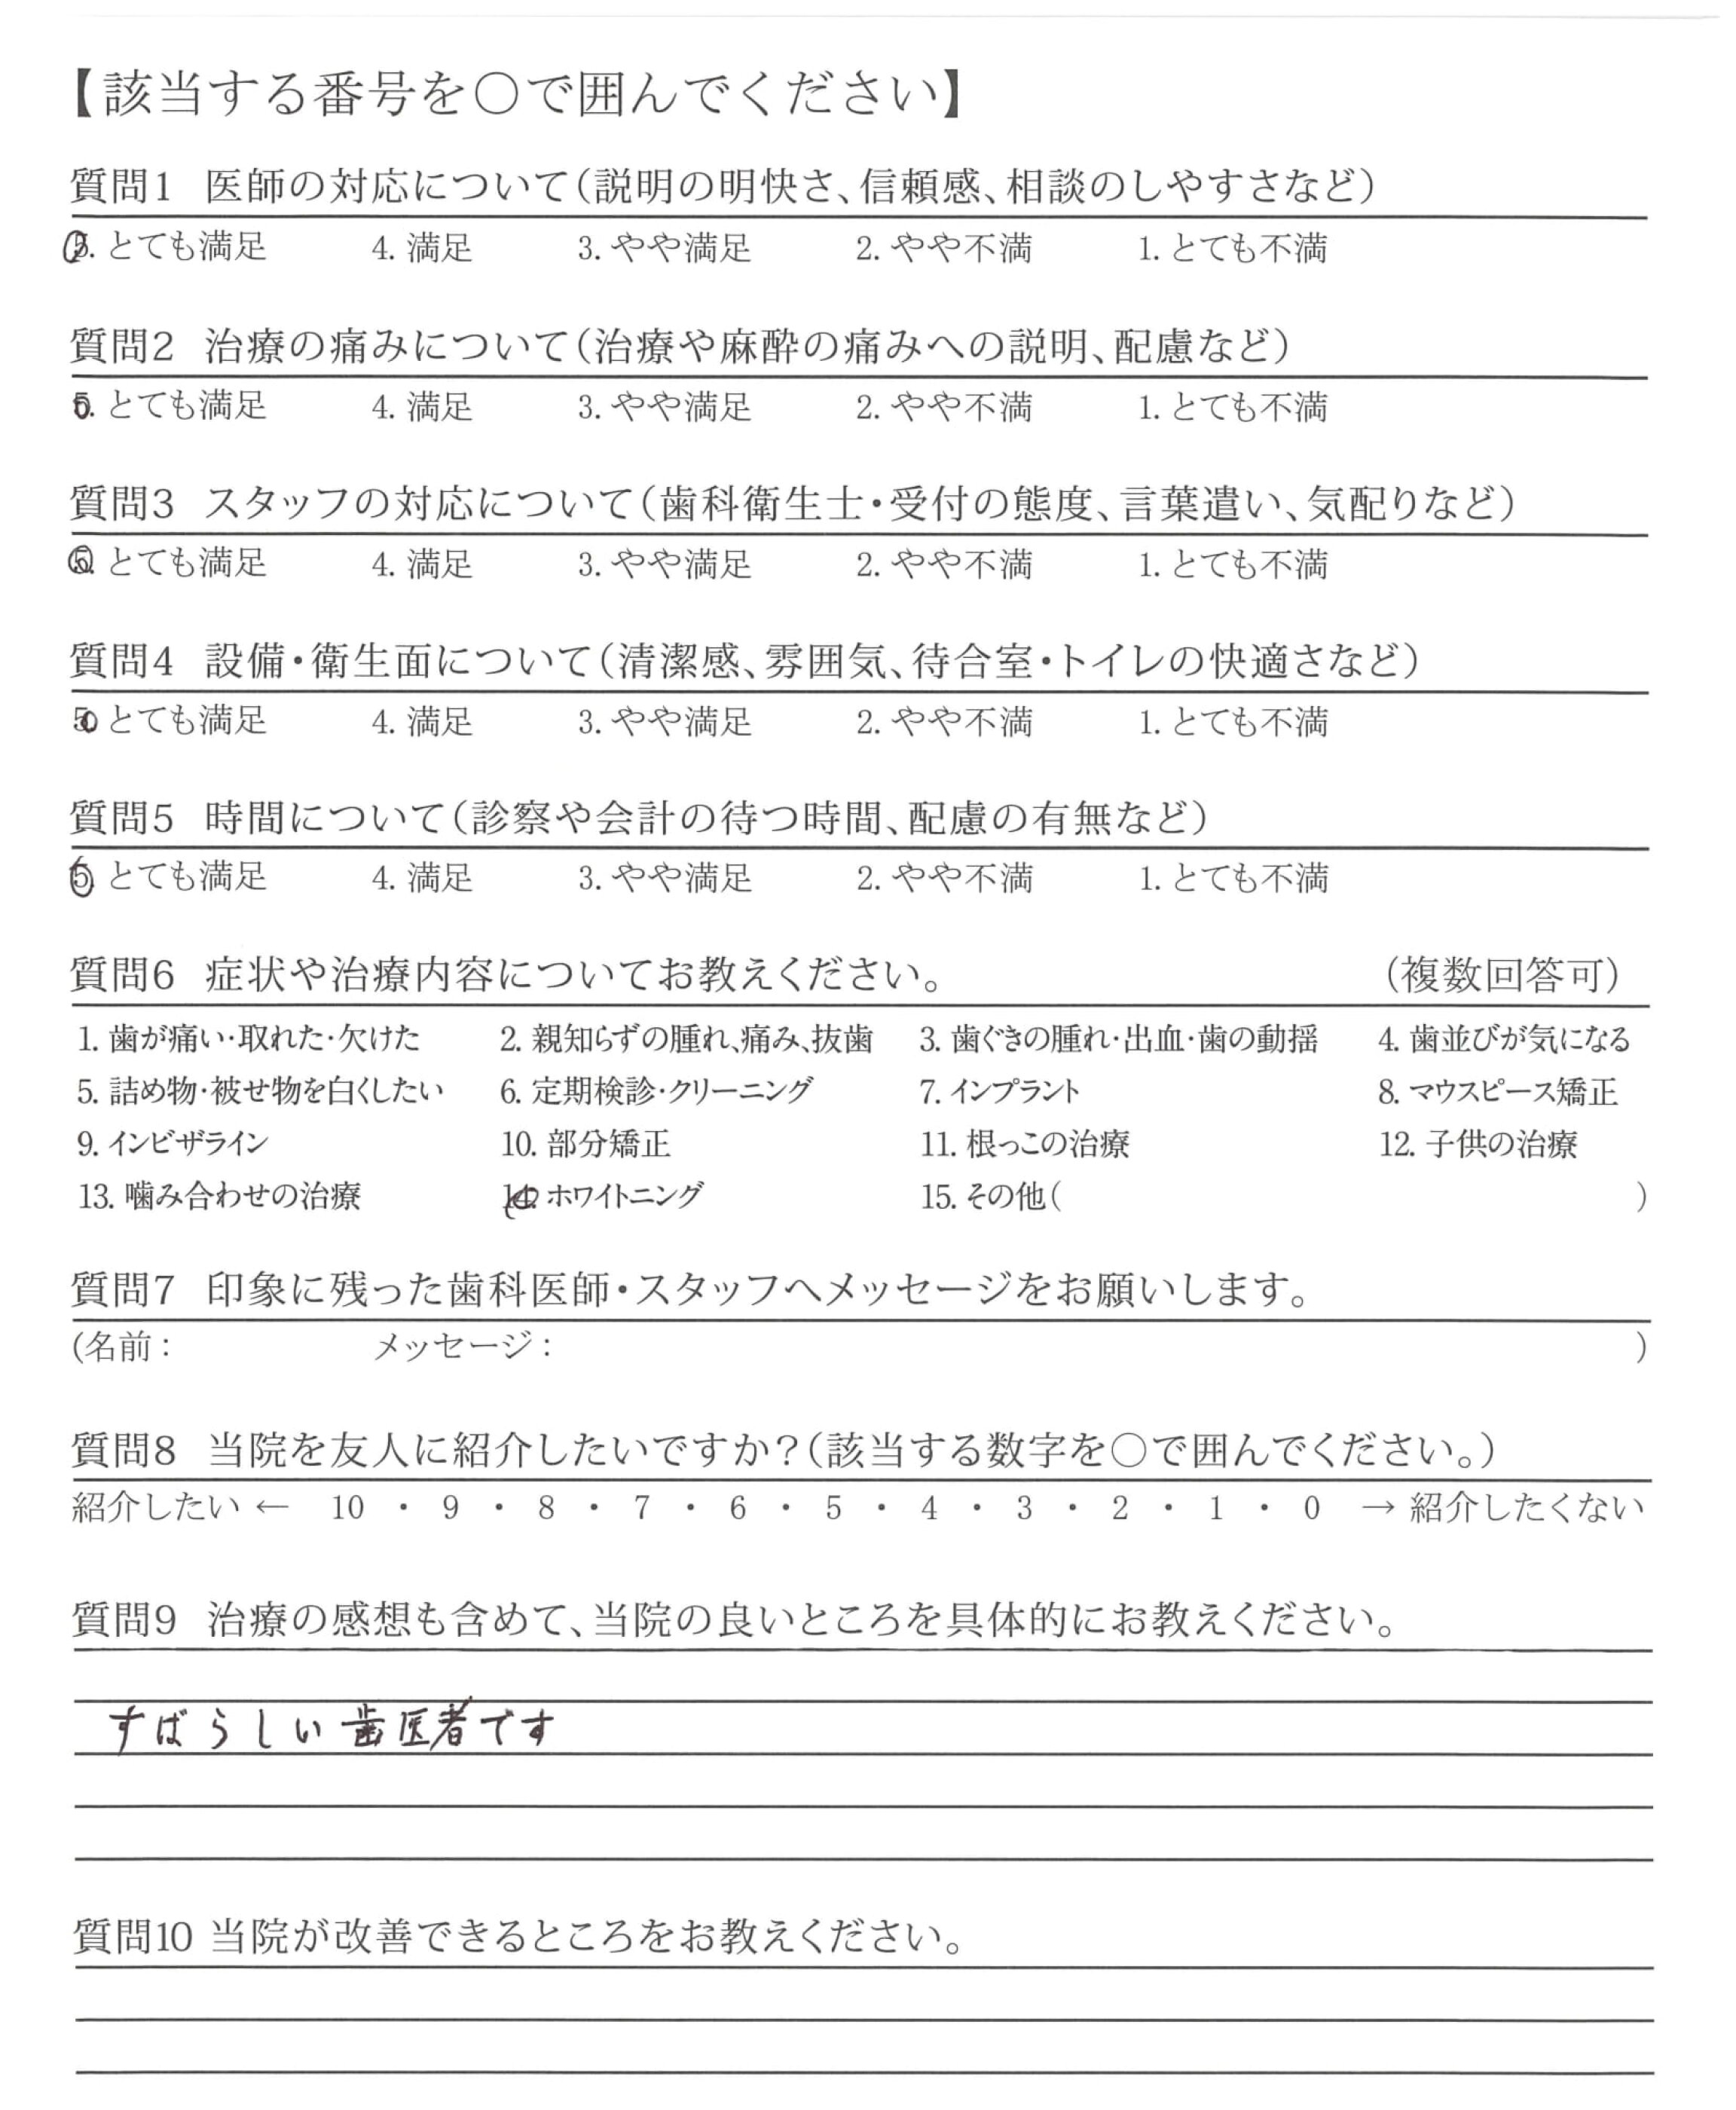 【該当する番号を〇で囲んでください】
質問1 医師の対応について(説明の明快さ、信頼感、相談のしやすさなど)
5. とても満足 4. 満足 3. やや満足 2. やや不満 1. とても不満
質問2 治療の痛みについて(治療や麻酔の痛みへの説明、配慮など)
5. とても満足 4. 満足 3. やや満足 2. やや不満 1. とても不満
質問3 スタッフの対応について(歯科衛生士・受付の態度、言葉遣い、気配りなど)
5. とても満足 4. 満足 3. やや満足 2. やや不満 1. とても不満
質問4 設備・衛生面について(清潔感、雰囲気、待合室・トイレの快適さなど)
5. とても満足 4. 満足 3. やや満足 2. やや不満 1. とても不満
質問5 時間について(診察や会計の待つ時間、配慮の有無など)
5. とても満足 4. 満足 3. やや満足 2. やや不満 1. とても不満
質問6 症状や治療内容についてお教えください。 (複数回答可)
1. 歯が痛い・取れた・欠けた 2. 親知らずの腫れ、痛み、抜歯 3. 歯ぐきの腫れ・出血・歯の動揺 4. 歯並びが気になる
5. 詰め物・被せ物を白くしたい 6. 定期検診・クリーニング 7. インプラント 8. マウスピース矯正
9. インビザライン 10. 部分矯正 11. 根っこの治療 12. 子供の治療
13. 噛み合わせの治療 14. ホワイトニング 15. その他( )
質問7 印象に残った歯科医師・スタッフへメッセージをお願いします。
(名前: メッセージ: )
質問8 当院を友人に紹介したいですか?(該当する数字を〇で囲んでください。)
紹介したい ← 10 ・ 9 ・ 8 ・ 7 ・ 6 ・ 5 ・ 4 ・ 3 ・ 2 ・ 1 ・ 0 → 紹介したくない
質問9 治療の感想も含めて、当院の良いところを具体的にお教えください。
すばらしい歯医者です
質問10 当院が改善できるところをお教えください。